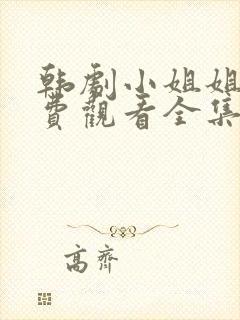 韩劇小姐姐
費觀看全集
高齊